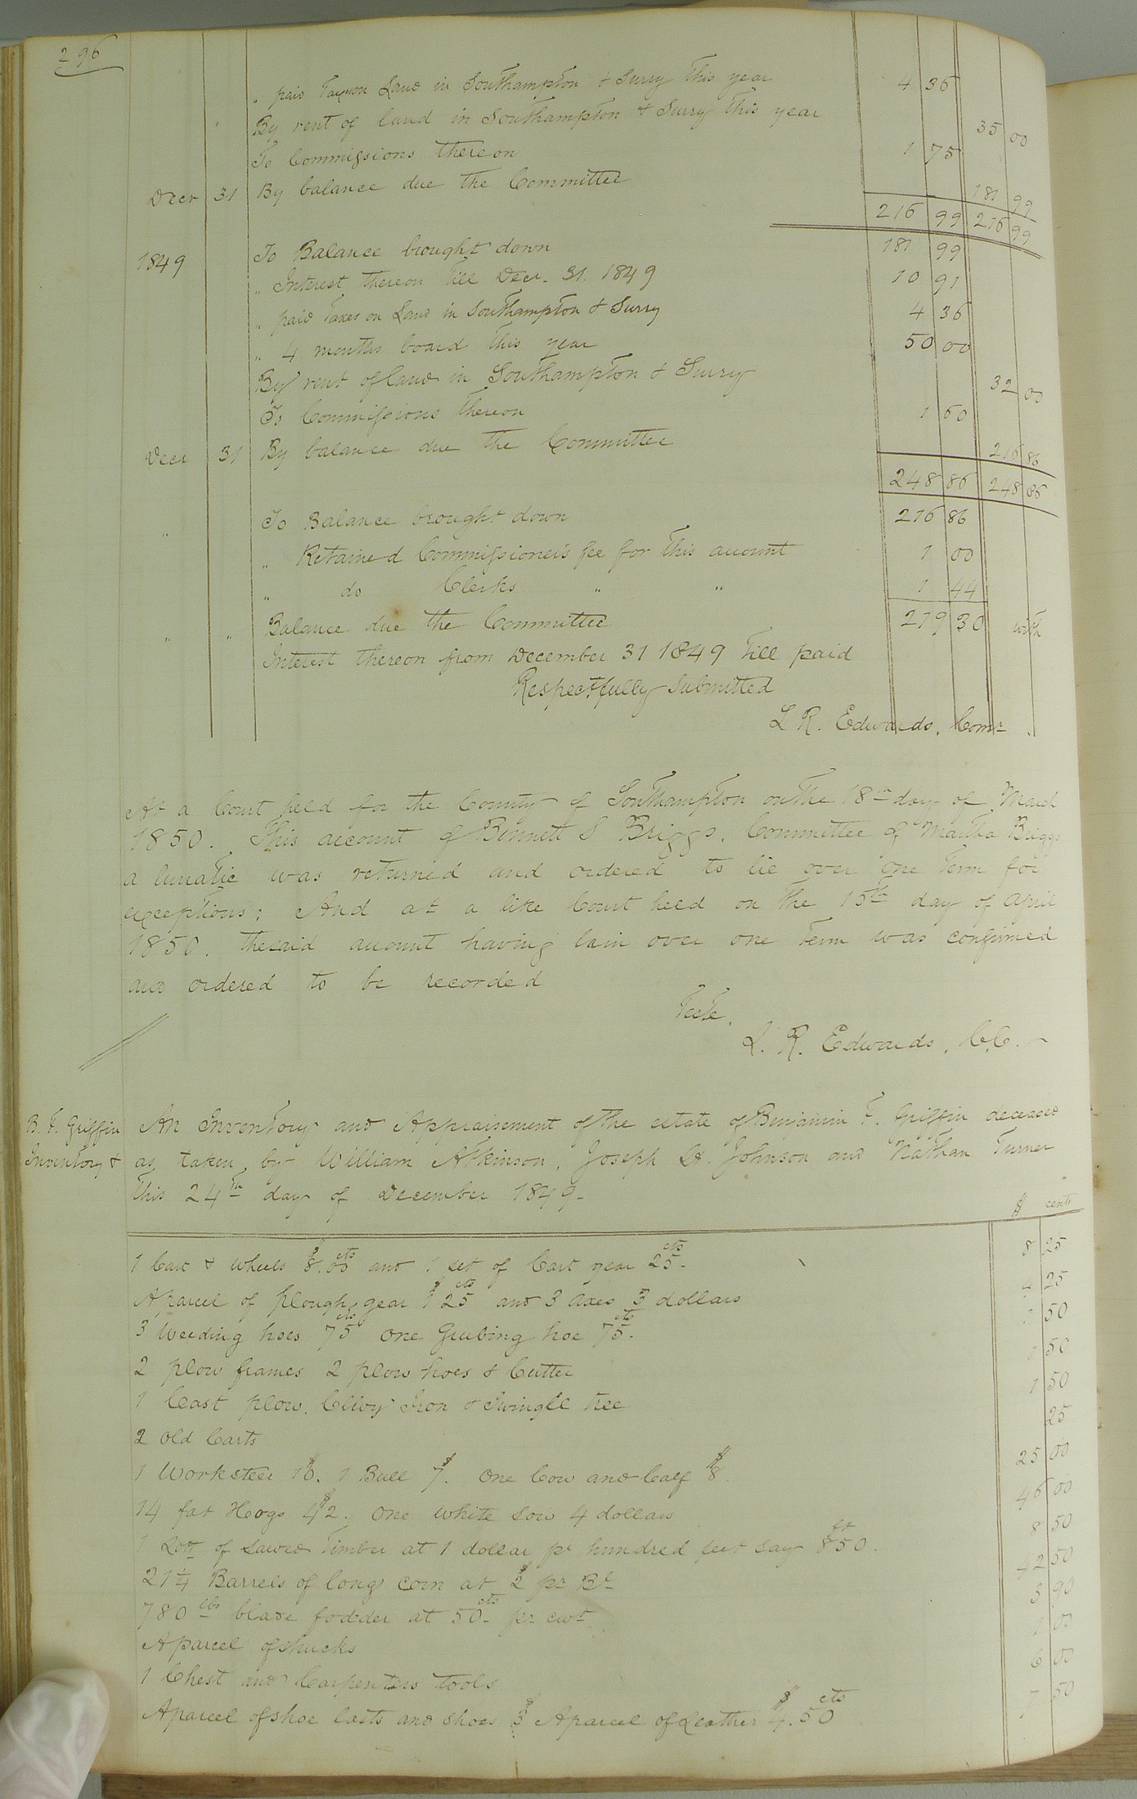 296
" paid Taxes on Land in Southampton & Surry this year 4 36
By rent of land in Southampton & Surry this year 35 00
To Commissions thereon 1 75
Decr 31 By balance due the Committee 181 99
216 99 216 99
1849 To Balance brought down 181 99
" Interest thereon till Decr. 31. 1849 10 91
" paid Taxes on Land in Southampton & Surry 4 36
" 4 months board this year 50 00
By rent of land in Southampton & Surry 32 00
To Commissions thereon 1 60
Decr 31 By balance due the Committee 216 86
248 86 248 86
" To Balance brought down 216 86
" Retained Commissioner's fee for this account 1 00
" do Clerks " " 1 44
" " Balance due the Committee 219 30 with
Interest thereon from December 31 1849 till paid
Respectfully Submitted
L R. Edwards. Comr.
At a Court held for the County of Southampton on the 18th day of March
1850. This account of Bennett S Briggs, Committee of Martha Briggs
a lunatic was returned and ordered to lie over one Term for
exceptions; And at a like Court held on the 15th day of April
1850. The said account having lain over one Term was confirmed
and ordered to be recorded
Teste.
L. R. Edwards, C.C.
B. F. Griffin An Inventory and Appraisement of the estate of Benjamin F. Griffin deceased
Inventory & as taken by William Atkinson, Joseph H. Johnson and Nathan Turner
This 24th day of December 1849.
$ cents
1 Cart & wheels $8.00 cts and 1 set of Cart gear 25 cts. 8 25
A parcel of plough gear $1 25 cts and 3 axes 3 dollars 4 25
3 Weeding hoes 75 cts one Grubing hoe 75 cts. 1 50
2 plow frames 2 plow hoes & Cutter 1 50
1 Cast plow, Clivy Iron & Swingle tree 1 50
2 old Carts 25
1 Work steer $10. 1 Bull $7. One Cow and Calf $8. 25 00
14 fat Hogs $42. one white sow 4 dollars 46 00
1 Lott of Sawed Timber at 1 dollar pr hundred feet say 850 ft. 8 50
21 1/4 Barrels of long corn at $2 pr Bl 42 50
780 lbs blade fodder at 50 cts pr cwt 3 90
A parcel of shucks 1 00
1 Chest and Carpenters tools 6 00
A parcel of shoe lasts and shoes $3 A parcel of Leather $4.50 cts 7 50